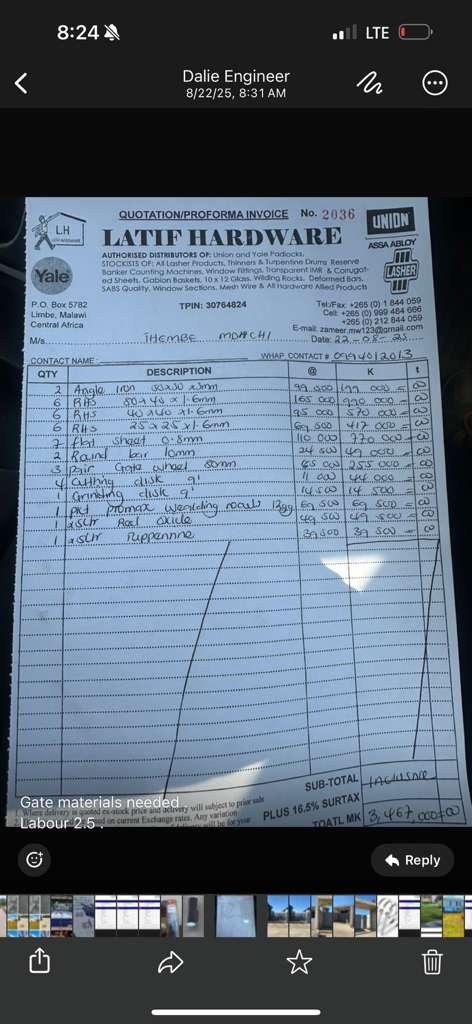 8:24
LTE
Dalie Engineer
8/22/25, 8:31 AM
QUOTATION/PROFORMA INVOICE No. 2036
LH
LATIF HARDWARE
UNION
ASSA ABLOY
LASHER
Yale
AUTHORISED DISTRIBUTORS OF: Union and Yale Padlocks,
STOCKISTS OF: All Lasher Products, Thinners & Turpentine Drums Reserve
Banker Counting Machines, Window Fittings, Transparent IMR & Corrugat-
ed Sheets, Gabion Baskets, 10 x 12 Glass, Wilding Rocks, Deformed Bars,
SABS Quality, Window Sections, Mesh Wire & All Hardware Allied Products
P.O. Box 5782
Limbe, Malawi
Central Africa
TPIN: 30764824
Tel:/Fax: +265 (0) 1 844 059
Cell: +265 (0) 999 484 666
+265 (0) 212 844 059
E-mail: zameer.mw123@gmail.com
Date: 22-08-25
M/s. THEMBE
CONTACT NAME:
WHAP CONTACT #
QTY DESCRIPTION @ K t
2 Angle Iron 99 500 199 000 = 00
6 RHS 165 000 990 000 = 00
6 RHS 40x40x1.6mm 95 000 570 000 = 00
6 RHS 25x25x1.6mm 69 500 417 000 = 00
7 flat sheet 0.8mm 110 000 770 000 = 00
2 Round bar 10mm 24 500 49 000 = 00
3 pair Gate wheel 80mm 85 000 255 000 = 00
4 cutting disk 9' 11 000 44 000 = 00
1 Grinding disk 9' 14 500 14 500 = 00
1 pkt promax 69 500 69 500 = 00
1 x5Ltr Red oxide 49 500 49 500 = 00
1 x5Ltr 39 500 39 500 = 00
SUB-TOTAL Inclusive
PLUS 16.5% SURTAX
TOATL MK 3,467,000=00
Gate materials needed
Labour 2.5 .
Reply